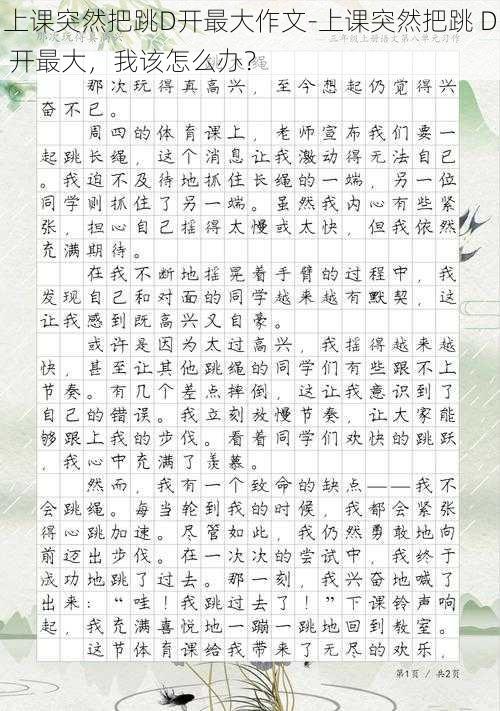 上课突然把跳D开最大作文-上课突然把跳 D
开最大，我该怎么办?
三年级上册语文第八单元习作
那次玩得真高兴，至今想起仍觉得兴
奋不已。
周四的体育课上，老师宣布我们要一
起跳长绳，这个消息让我激动得无法自己
。我迫不及待地抓住长绳的一端，另一位
同学则抓住了另一端。虽然我内心有些紧
张，担心自己摇得太慢或太快，但我依然
充满期待。
在我不断地摇晃着手臂的过程中，我
发现自己和对面的同学越来越有默契，这
让我感到既高兴又自豪。
或许是因为太过高兴，我摇得越来越
快，甚至让其他跳绳的同学们有些跟不上
节奏。有几个差点摔倒，这让我意识到了
自己的错误。我立刻放慢节奏，让大家能
够跟上我的步伐。看着同学们欢快的跳跃
，我心中充满了羡慕。
然而，我有一个致命的缺点——我不
会跳绳。每当轮到我的时候，我都会紧张
得心跳加速。尽管如此，我仍然勇敢地向
前迈出步伐。在一次次的尝试中，我终于
成功地跳了过去。那一刻，我兴奋地喊了
出来：“哇！我跳过去了！”下课铃声响
起，我充满喜悦地一蹦一跳地回到教室。
这节体育课给我带来了无尽的欢乐，
第1页 / 共2页